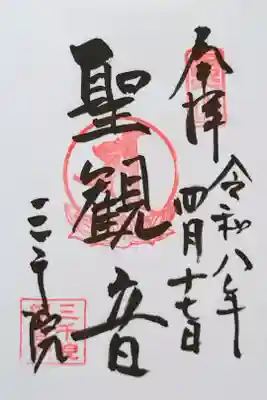 奉拝
令和八年
四月十七日
聖観音
三千院